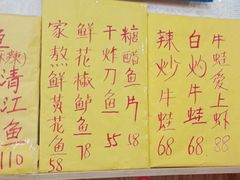 鱼
(麻辣)
清江鱼
110
家熬鲜黄花鱼
58
鲜花椒鲈鱼
78
干炸刀鱼
55
糖醋鱼片
38
辣炒牛蛙
68
白灼牛蛙
68
牛蛙爱上虾
88